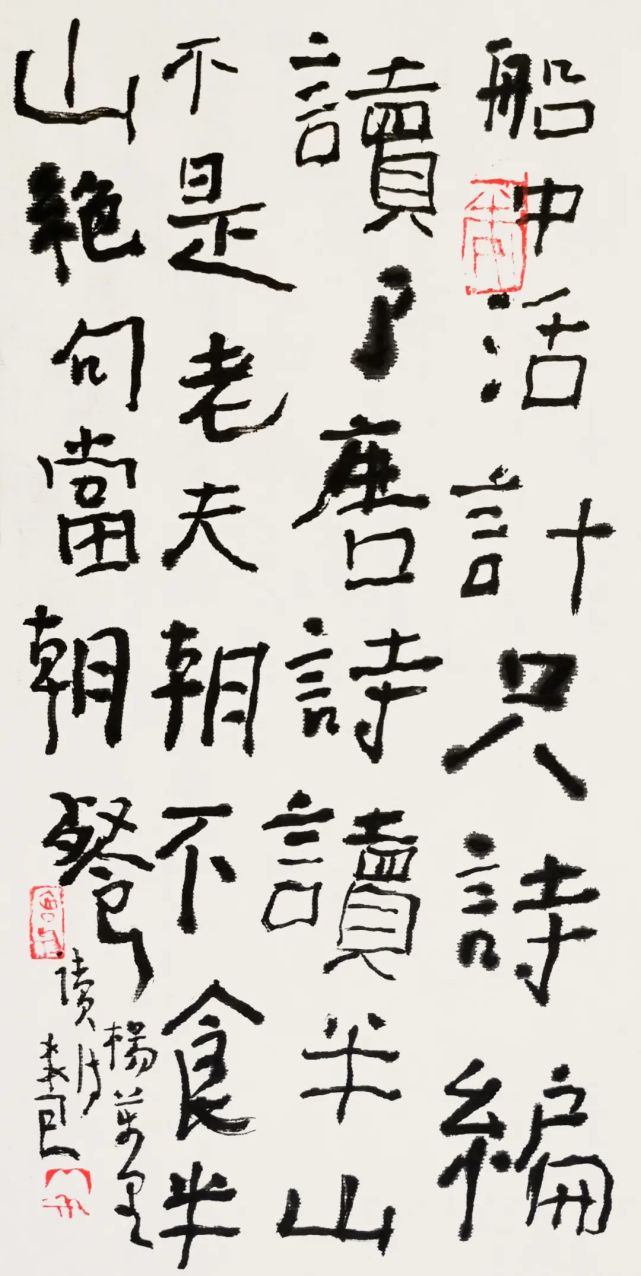 船中活計只詩編
讀了唐詩讀半山
不是老夫朝不食半
山絶句當朝餐
楊萬里
讀詩